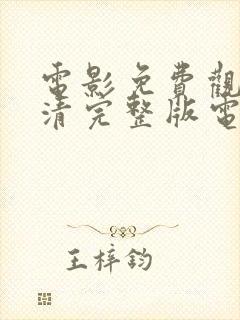 電影免費觀
清完整版電
王梓鈞